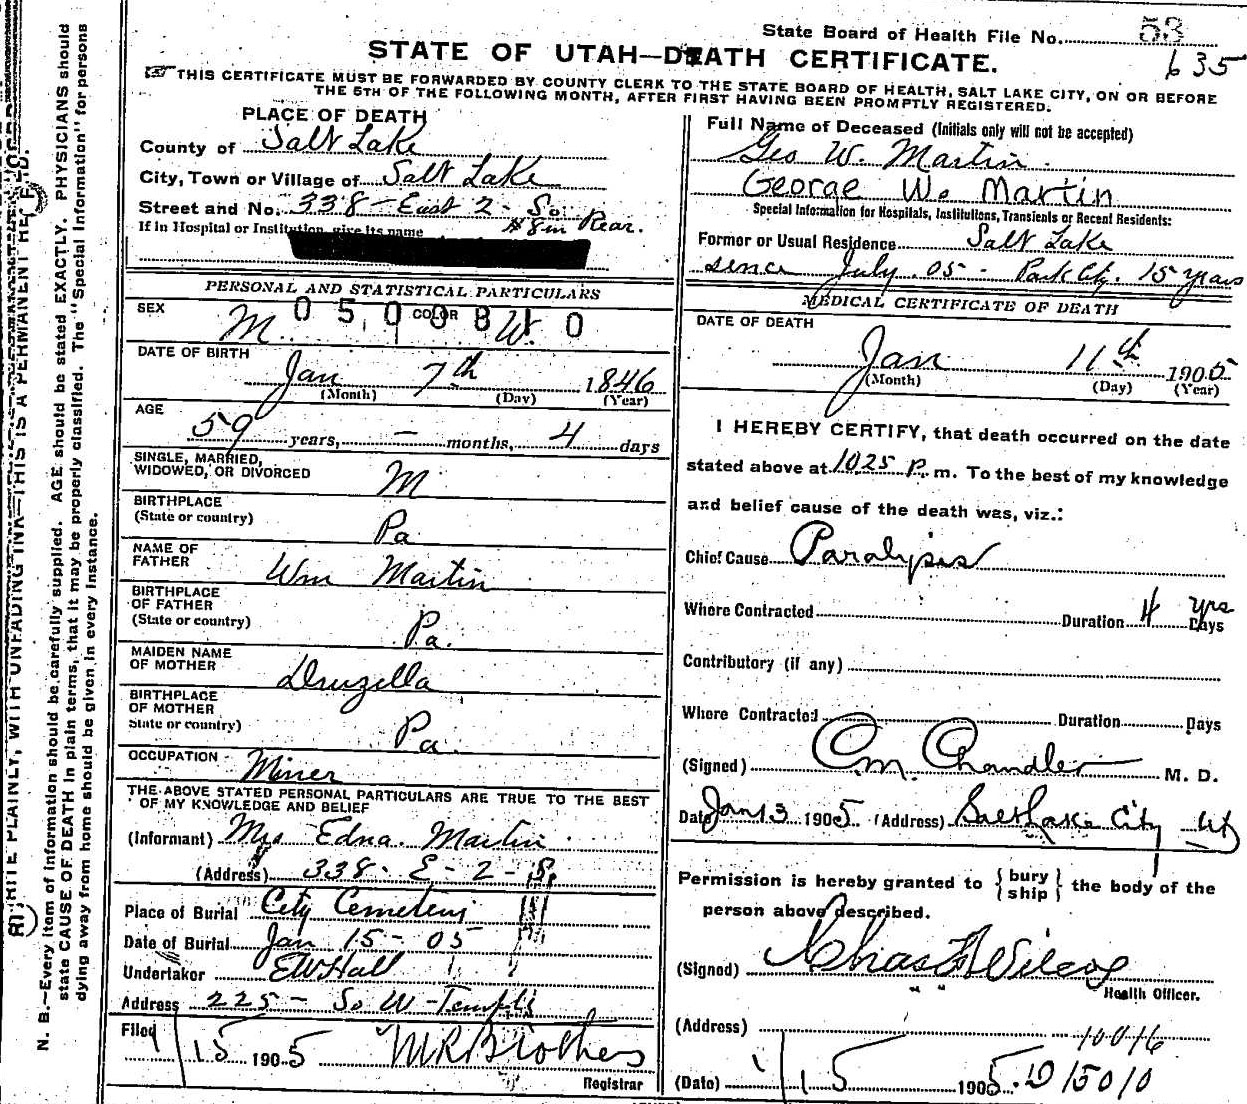 State Board of Health File No. 53
635
STATE OF UTAH—DEATH CERTIFICATE.
THIS CERTIFICATE MUST BE FORWARDED BY COUNTY CLERK TO THE STATE BOARD OF HEALTH, SALT LAKE CITY, ON OR BEFORE
THE 5TH OF THE FOLLOWING MONTH, AFTER FIRST HAVING BEEN PROMPTLY REGISTERED.
PLACE OF DEATH
County of Salt Lake
City, Town or Village of Salt Lake
Street and No. 338 - East 2 - So.
If in Hospital or Institution, give its name Rear.
PERSONAL AND STATISTICAL PARTICULARS
0500810
SEX M. COLOR W.
DATE OF BIRTH
Jan 7th 1846
(Month) (Day) (Year)
AGE
59 years, — months, 4 days
SINGLE, MARRIED,
WIDOWED, OR DIVORCED M
BIRTHPLACE
(State or country) Pa
NAME OF
FATHER Wm Martin
BIRTHPLACE
OF FATHER
(State or country) Pa.
MAIDEN NAME
OF MOTHER Druzella
BIRTHPLACE
OF MOTHER
State or country) Pa.
OCCUPATION Miner
THE ABOVE STATED PERSONAL PARTICULARS ARE TRUE TO THE BEST
OF MY KNOWLEDGE AND BELIEF
(Informant) Mrs Edna Martin
(Address) 338 - E - 2 - S.
Place of Burial City Cemetery
Date of Burial Jan 15 - 05
Undertaker EW Hall
Address 225 - So W - Temple
Filed 1/15 1905 MR Brothers
Registrar
Full Name of Deceased (Initials only will not be accepted)
Geo W. Martin
George W. Martin
Special Information for Hospitals, Institutions, Transients or Recent Residents:
Former or Usual Residence Salt Lake
since July 05 - Park City. 15 years
MEDICAL CERTIFICATE OF DEATH
DATE OF DEATH
Jan 11th 1905
(Month) (Day) (Year)
I HEREBY CERTIFY, that death occurred on the date
stated above at 1025 P. m. To the best of my knowledge
and belief cause of the death was, viz.:
Chief Cause Paralysis
Where Contracted Duration 4 yrs Days
Contributory (if any)
Where Contracted Duration Days
(Signed) C.M. Chandler M. D.
Date Jan 13 1905 (Address) Salt Lake City Ut
Permission is hereby granted to { bury ship } the body of the
person above described.
(Signed) Chas F Wilcox
Health Officer.
(Address) 10016
(Date) 1/15 1905. 15010
N. B.—Every item of information should be carefully supplied. AGE should be stated EXACTLY. PHYSICIANS should
state CAUSE OF DEATH in plain terms, that it may be properly classified. The "Special Information" for persons
dying away from home should be given in every instance.
WRITE PLAINLY, WITH UNFADING INK—THIS IS A PERMANENT